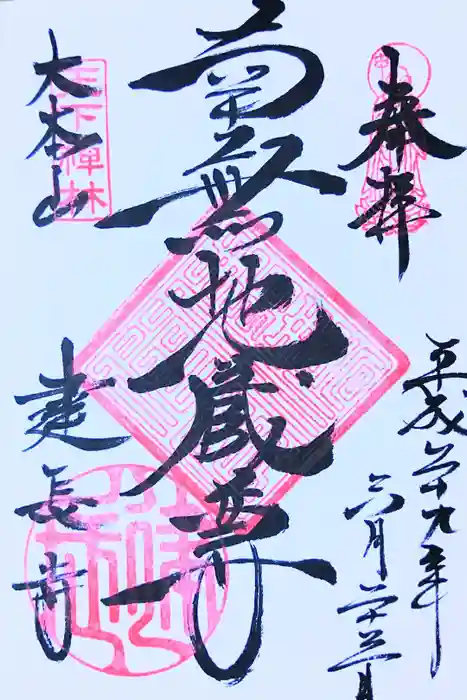 奉拝
平成二十九年
六月二十三日
南無地蔵尊
大本山
天下禅林
建長寺